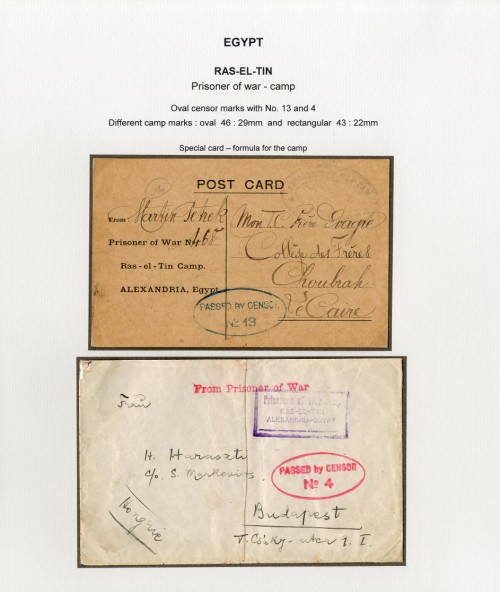 EGYPT
RAS-EL-TIN
Prisoner of war - camp
Oval censor marks with No. 13 and 4
Different camp marks : oval 46 : 29mm and rectangular 43 : 22mm
Special card – formula for the camp
POST CARD
From: Martin Petrek
Prisoner of War No. 168
Ras-el-Tin Camp.
ALEXANDRIA, Egypt.
Mon T. C. Frère Evagre
Collège des Frères
Choubrah
Le Caire
PASSED BY CENSOR
No 13
From Prisoner of War
From
Prisoners of War Camp
RAS-EL-TIN
ALEXANDRIA-EGYPT
H. Haraszti
c/o. S. Markovits
PASSED by CENSOR
No 4
Hongrie
Budapest